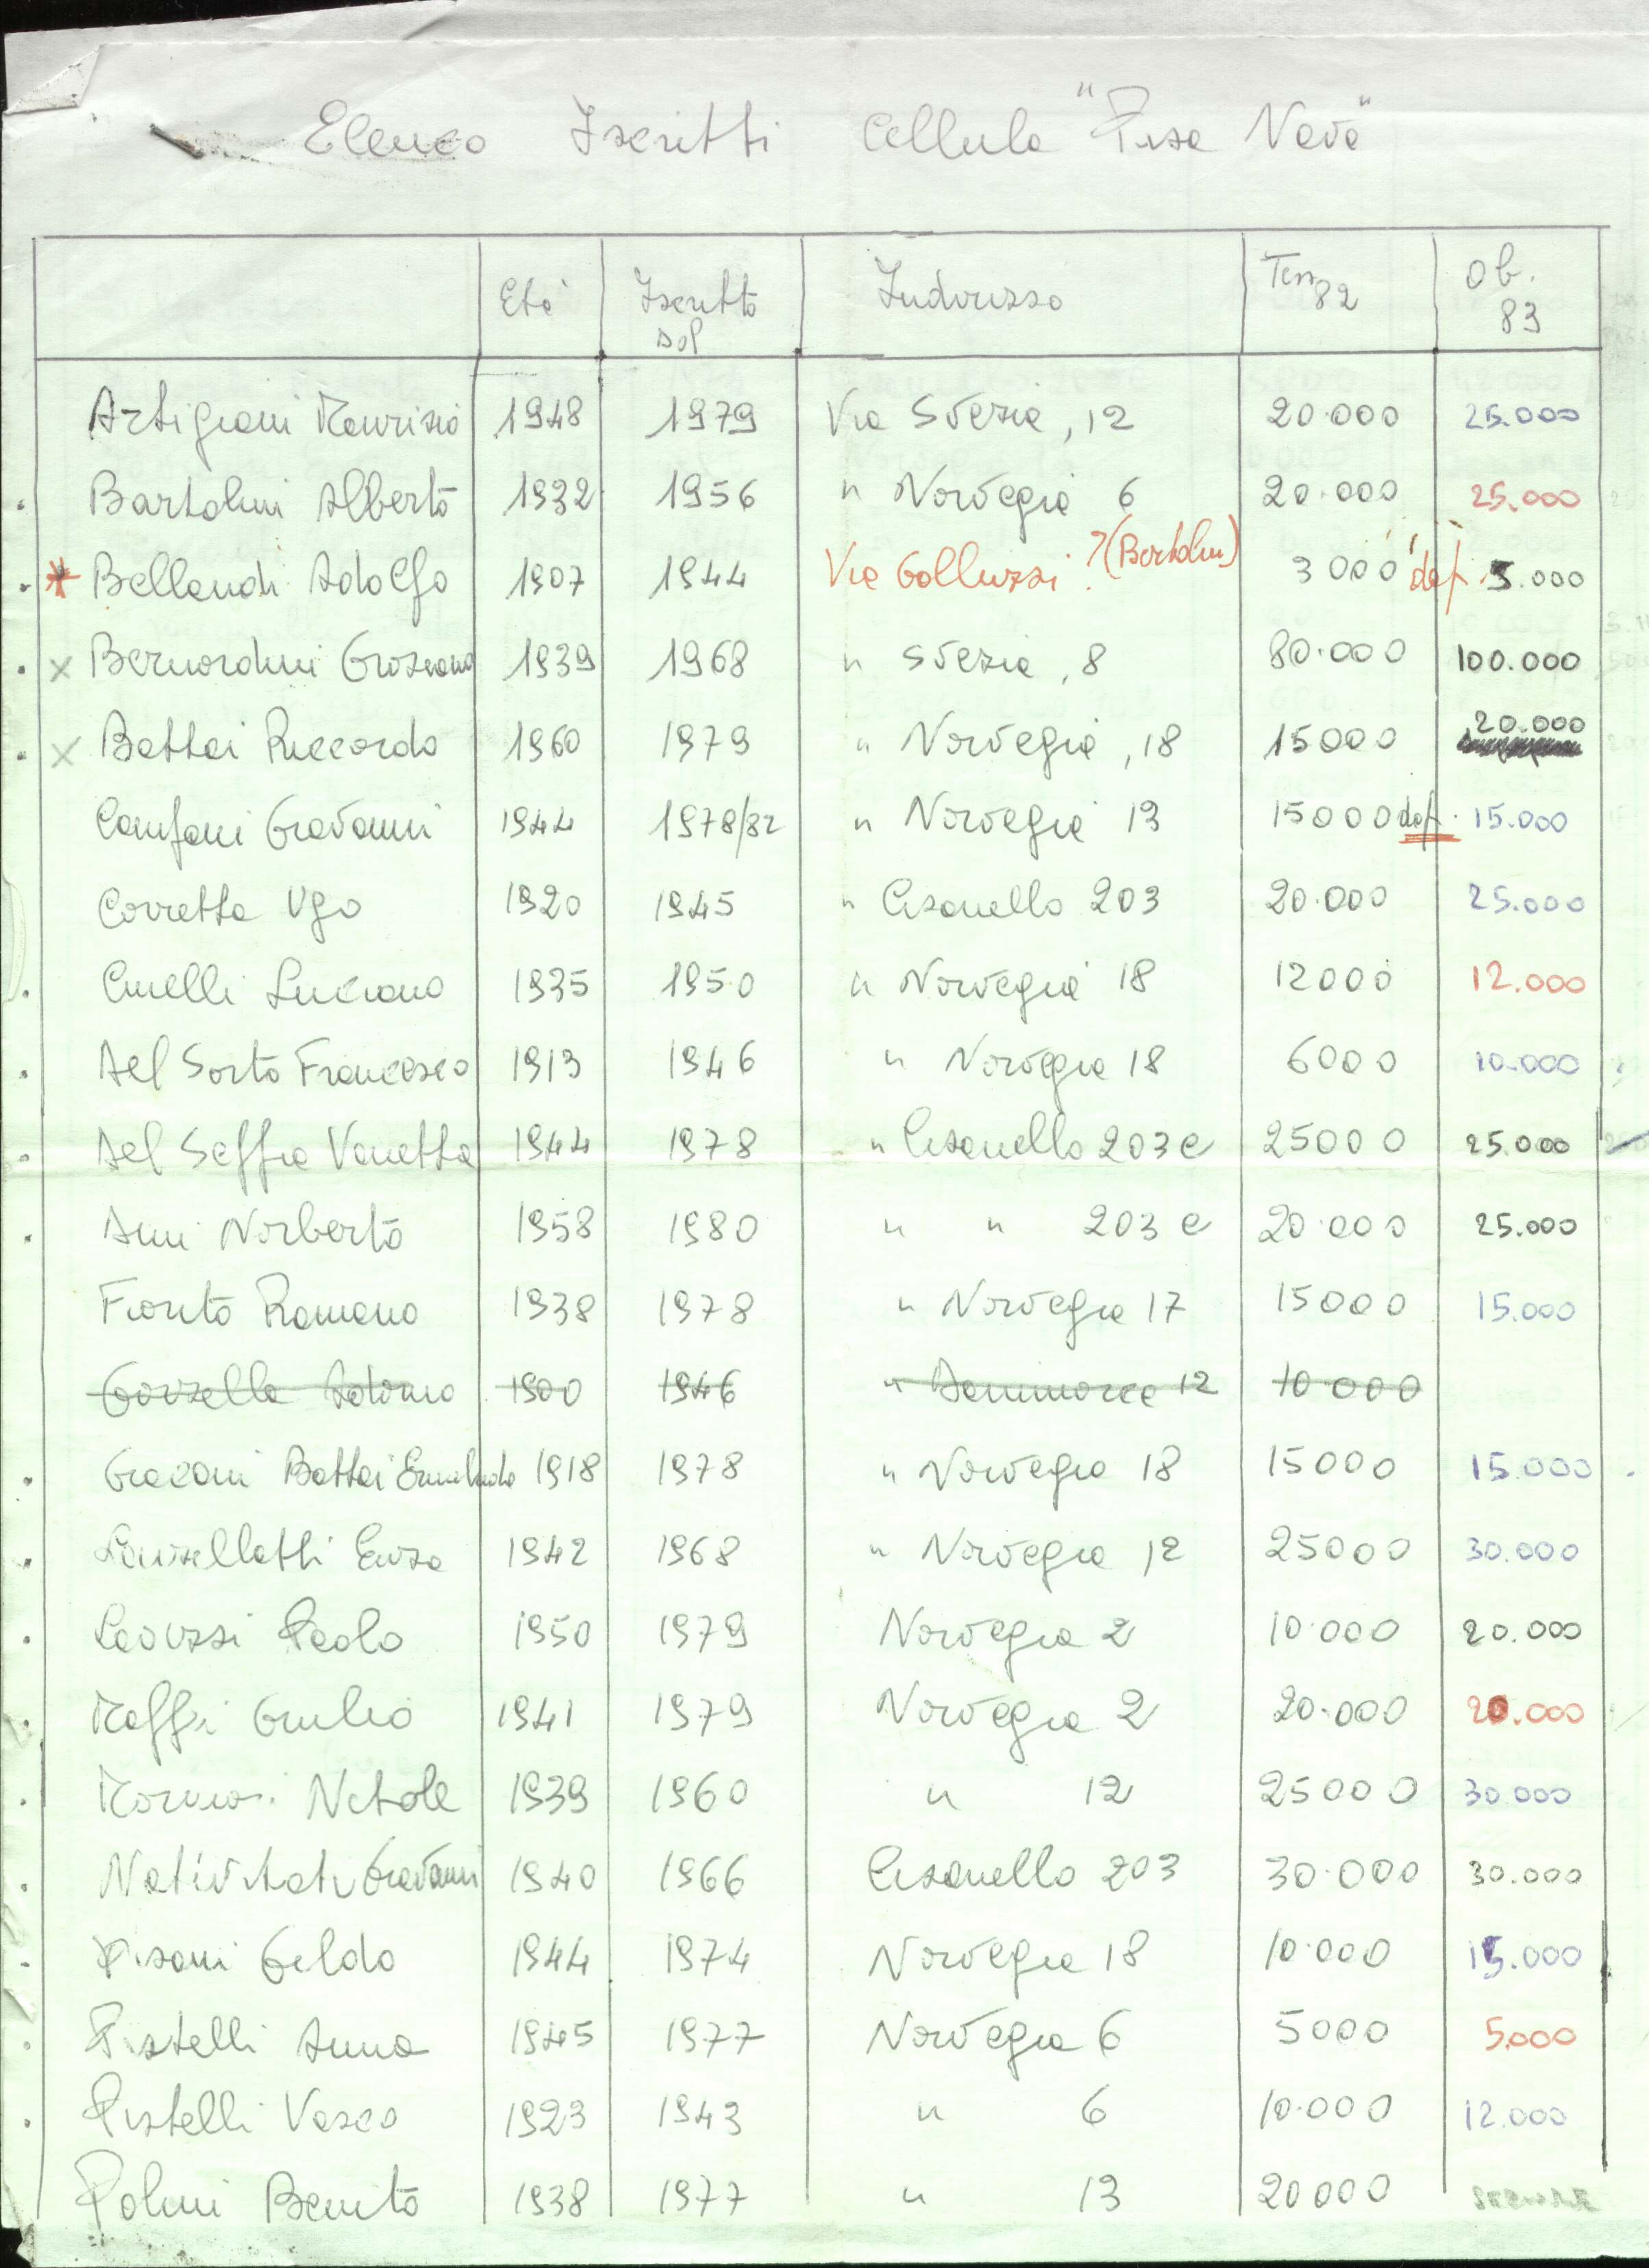 Elenco Iscritti Cellula "Pisa Nova"
Età Iscritto dal Indirizzo Tess. 82 Ob. 83
Artigiani Maurizio 1948 1979 Via Svezia, 12 20.000 25.000
Bartolini Alberto 1932 1956 " Norvegia 6 20.000 25.000
* Bellandi Adolfo 1907 1944 Via Galluzzi ? (Bartolini) 3000 def. 5.000
x Bernardini Graziano 1939 1968 " Svezia, 8 80.000 100.000
x Battai Riccardo 1960 1979 " Norvegia, 18 15000 20.000
Campani Giovanni 1944 1978/82 " Norvegia 13 15000 def. 15.000
Corretta Ugo 1920 1945 " Cisanello 203 20.000 25.000
Cinelli Luciano 1935 1950 " Norvegia 18 12000 12.000
Del Sarto Francesco 1913 1946 " Norvegia 18 6000 10.000
Del Seppia Vanetta 1944 1978 " Cisanello 203 e 25000 25.000
Dini Norberto 1958 1980 " " 203 e 20.000 25.000
Fiorito Romano 1938 1978 " Norvegia 17 15000 15.000
Garzella 1900 1946 " Danimarca 12 10000
Graziani Battai 1918 1978 " Norvegia 18 15000 15.000
Enza 1942 1968 " Norvegia 12 25000 30.000
Lavizzi Paolo 1950 1979 Norvegia 2 10.000 20.000
Maffi Giulio 1941 1979 Norvegia 2 20.000 20.000
Natale 1939 1960 " 12 25000 30.000
Nativitati Giovanni 1940 1966 Cisanello 203 30.000 30.000
Pisani Gildo 1944 1974 Norvegia 18 10.000 15.000
Pistelli Anna 1945 1977 Norvegia 6 5000 5.000
Pistelli Vasco 1923 1943 " 6 10.000 12.000
Polini Benito 1938 1977 " 13 20000